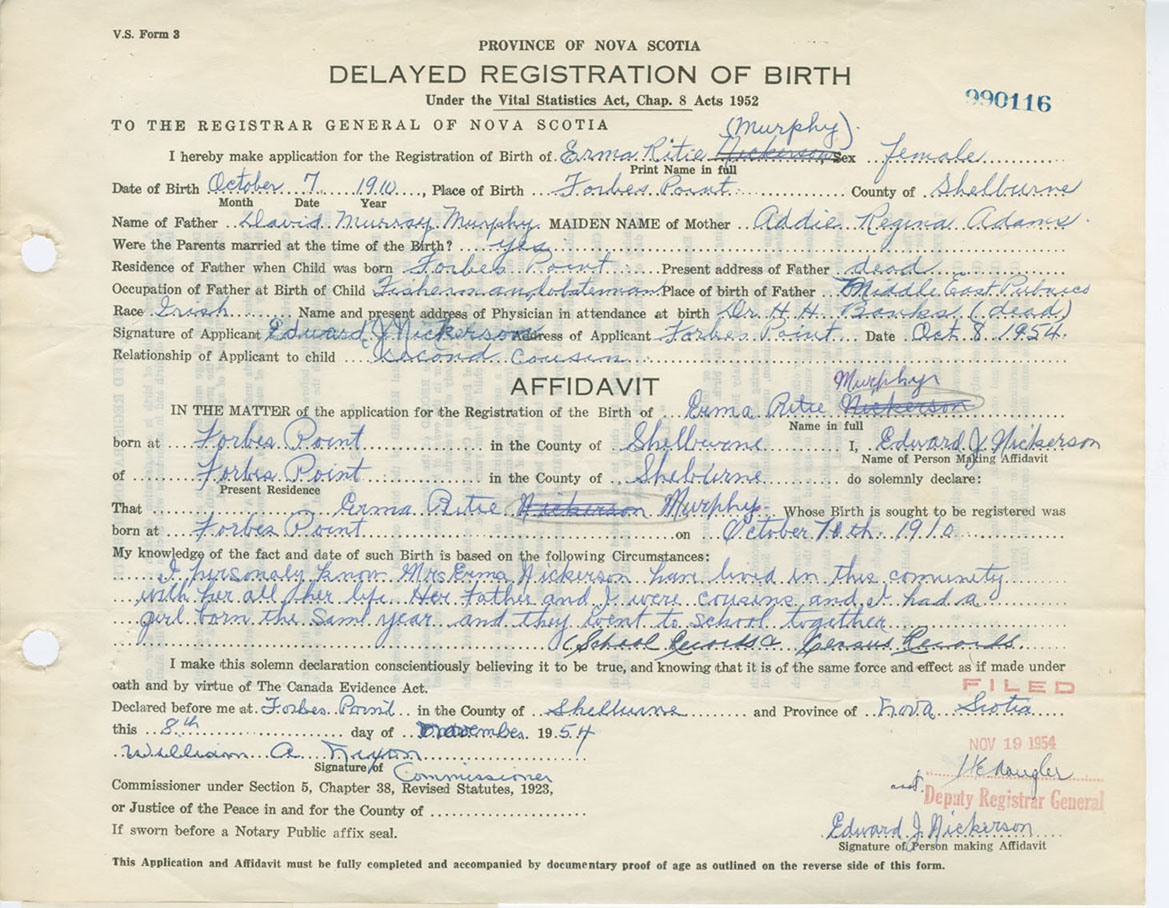 V.S. Form 3
PROVINCE OF NOVA SCOTIA
DELAYED REGISTRATION OF BIRTH
Under the Vital Statistics Act, Chap. 8 Acts 1952
990116
TO THE REGISTRAR GENERAL OF NOVA SCOTIA
(Murphy)
I hereby make application for the Registration of Birth of Erma Ritie Nickerson Sex female
Print Name in full
Date of Birth October 7 1910, Place of Birth Forbes Point County of Shelburne
Month Date Year
Name of Father David Murray Murphy MAIDEN NAME of Mother Addie Regina Adams
Were the Parents married at the time of the Birth? yes
Residence of Father when Child was born Forbes Point Present address of Father dead
Occupation of Father at Birth of Child Fisherman Place of birth of Father Middle East Pubnico
Race Irish Name and present address of Physician in attendance at birth Dr. H. H. Banks (dead)
Signature of Applicant Edward J Nickerson Address of Applicant Forbes Point Date Oct. 8 1954
Relationship of Applicant to child second cousin
AFFIDAVIT
Murphy
IN THE MATTER of the application for the Registration of the Birth of Erma Ritie Nickerson
Name in full
born at Forbes Point in the County of Shelburne I, Edward J Nickerson
Name of Person Making Affidavit
of Forbes Point in the County of Sheburne do solemnly declare:
Present Residence
That Erma Ritie Nickerson Murphy Whose Birth is sought to be registered was
born at Forbes Point on October 1910
My knowledge of the fact and date of such Birth is based on the following Circumstances:
I personaly know Mrs Erma Nickerson have lived in this comunity
with her all her life. Her Father and I were cousins and I had a
girl born the same year and they went to school together
(School Records & Census Records
I make this solemn declaration conscientiously believing it to be true, and knowing that it is of the same force and effect as if made under
oath and by virtue of The Canada Evidence Act.
FILED
Declared before me at Forbes Point in the County of Shelburne and Province of Nova Scotia
this 8th day of November 1954
NOV 19 1954
William A Nixon
Signature of Commissioner
Commissioner under Section 5, Chapter 38, Revised Statutes, 1923,
Deputy Registrar General
or Justice of the Peace in and for the County of
Edward J. Nickerson
If sworn before a Notary Public affix seal.
Signature of Person making Affidavit
This Application and Affidavit must be fully completed and accompanied by documentary proof of age as outlined on the reverse side of this form.